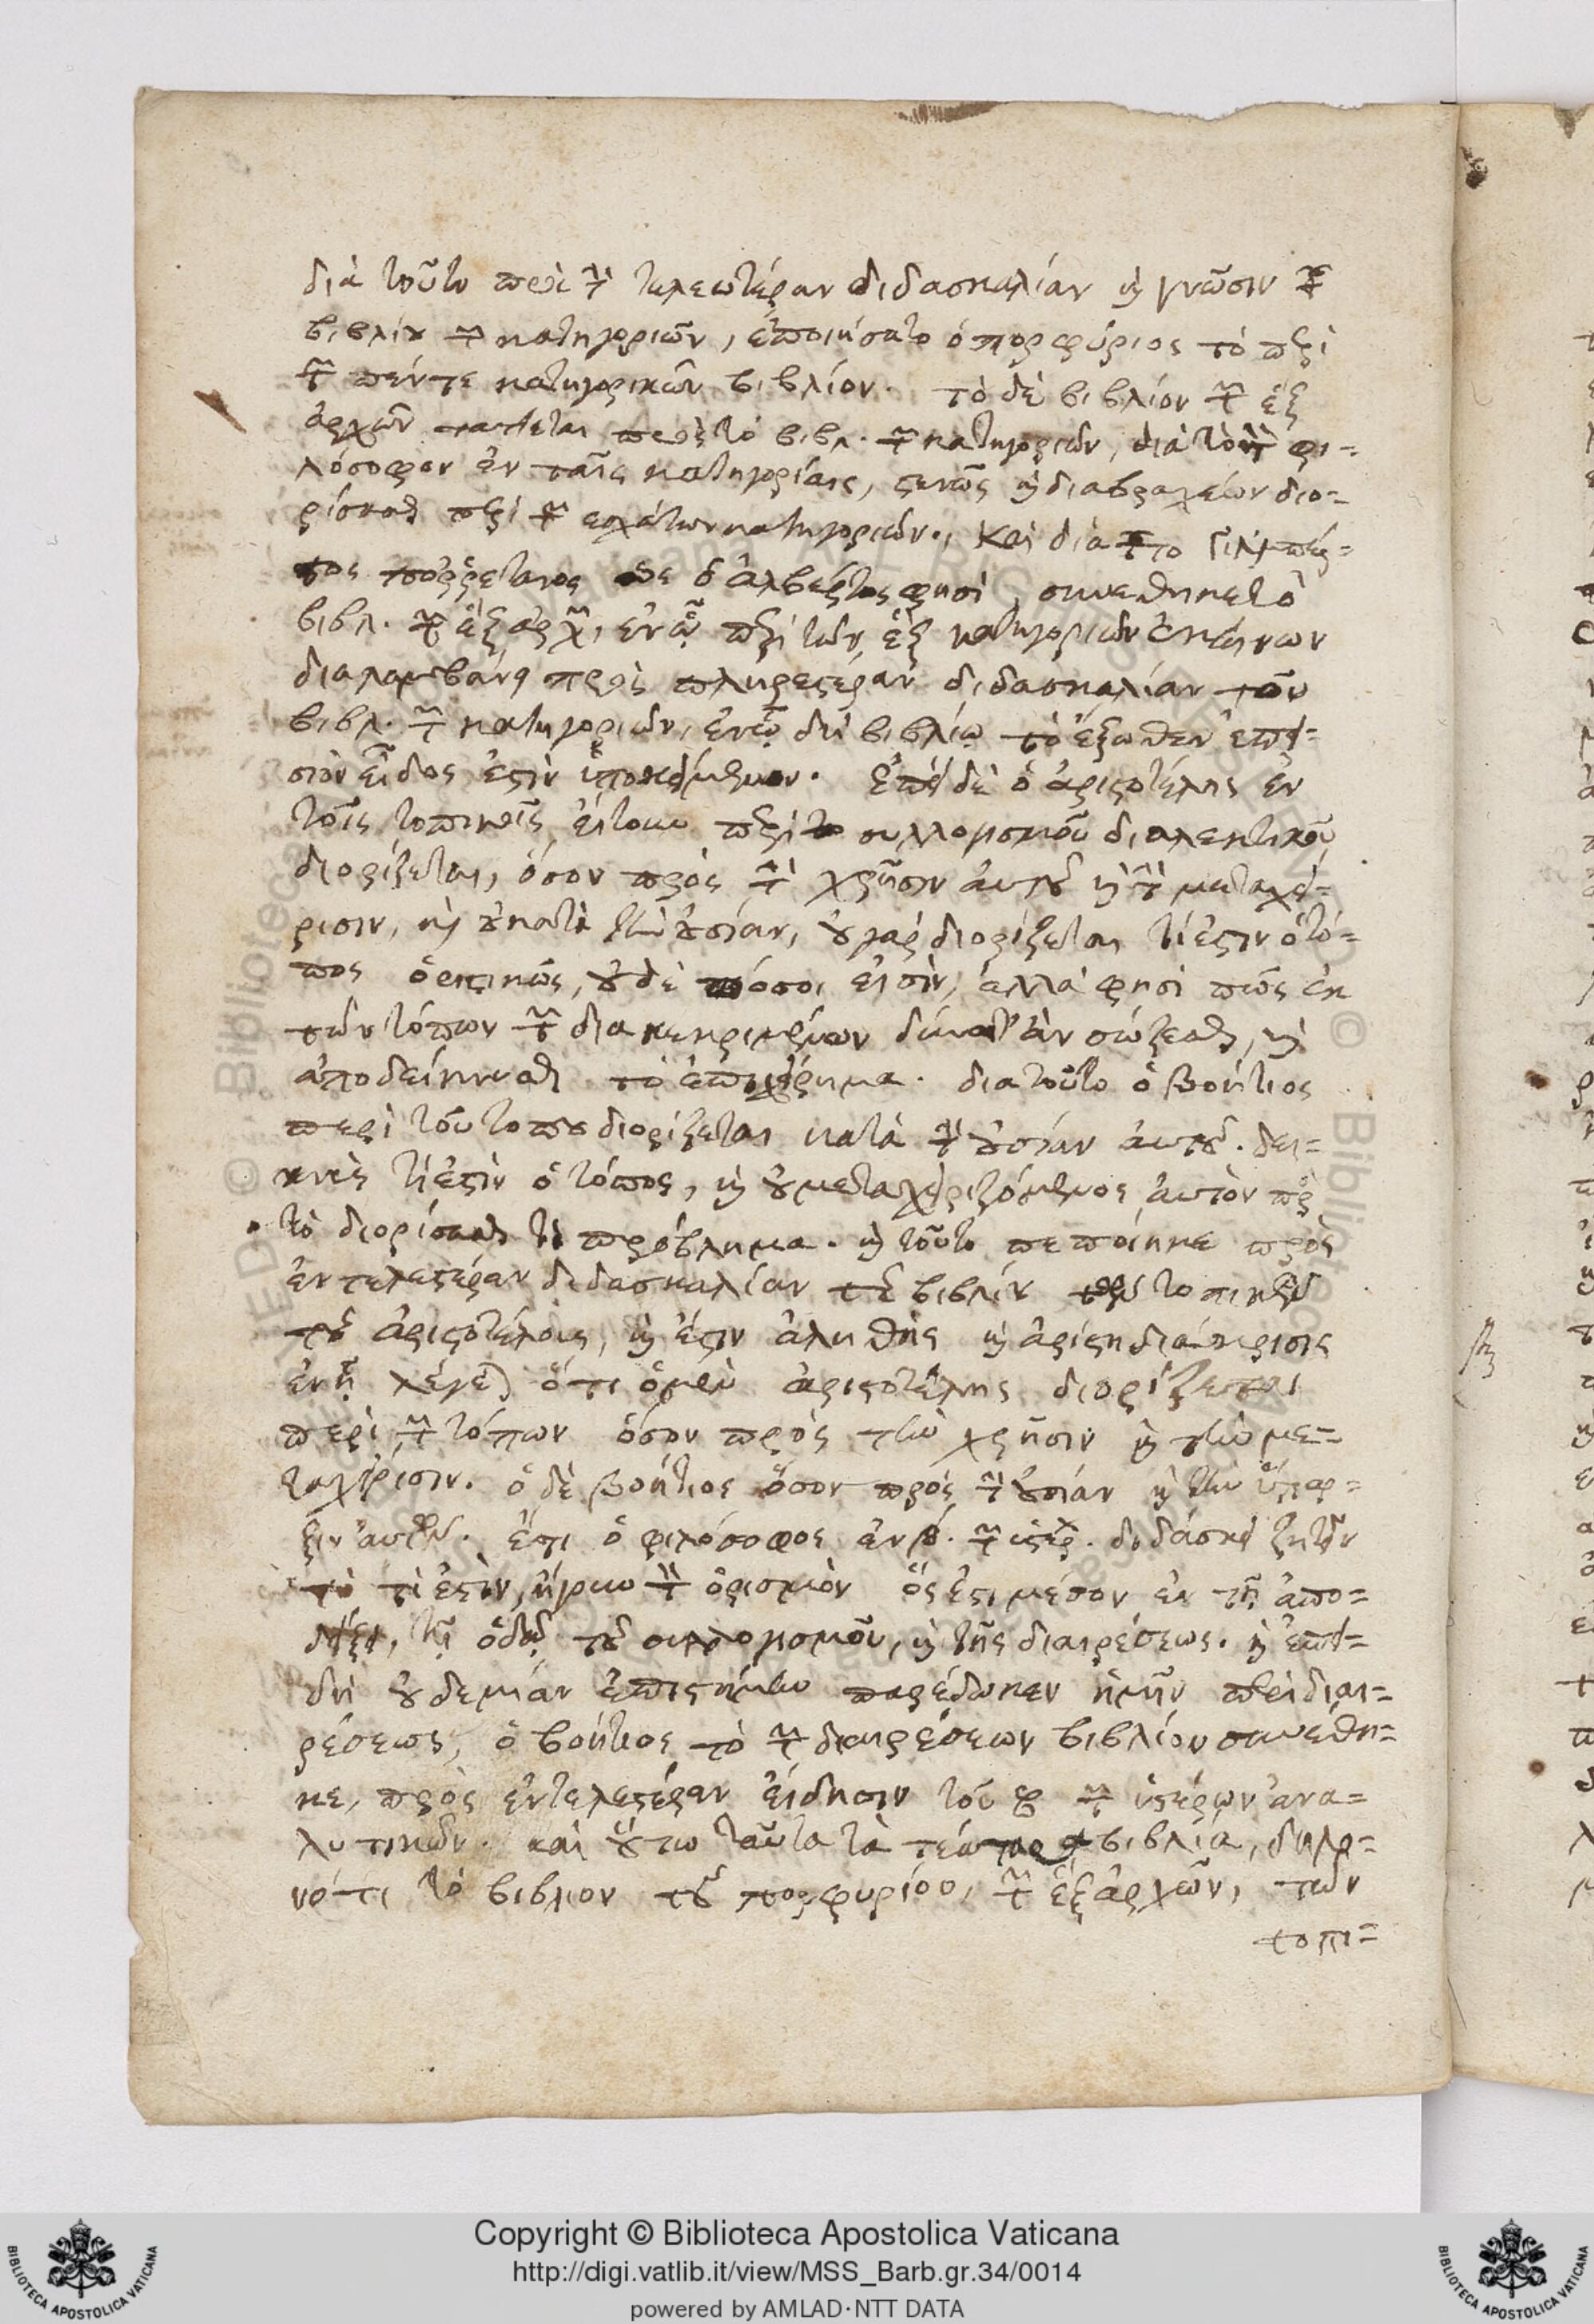 διὰ τοῦτο πρὸς τὴν τελεωτέραν διδασκαλίαν καὶ γνῶσιν τοῦ
βιβλίου τῶν κατηγοριῶν, ἐποιήσατο ὁ πορφύριος τὸ περὶ
τῶν πέντε κατηγορικῶν βιβλίον. τὸ δὲ βιβλίον τῶν ἓξ
ἀρχῶν τάττεται πρὸς τὸ βιβλ. τῶν κατηγοριῶν, διὰ τὸ τὸν φι-
λόσοφον ἐν ταῖς κατηγορίαις, στενῶς καὶ διαβραχείων διο-
ρίσασθαι περὶ τῶν ἐσχάτων κατηγοριῶν. Καὶ διὰ τοῦτο
ὁ ἀλβέρτος φησὶ, συνέθηκε τὸ
βιβλ. τῶν ἓξ ἀρχῶν, ἐν ᾧ περὶ τῶν ἓξ κατηγοριῶν ἐκείνων
διαλαμβάνει πρὸς πληρεστέραν διδασκαλίαν τοῦ
βιβλ. τῶν κατηγοριῶν, ἐν ᾧ δὴ βιβλίῳ τὸ ἔξωθεν ἐπει-
σιὸν εἶδος ἐστὶν ὑποκείμενον. Ἐπεὶ δὲ ὁ ἀριστοτέλης ἐν
τοῖς τοπικοῖς, εἴτουν περὶ τοῦ συλλογισμοῦ διαλεκτικοῦ
διορίζεται, ὅσον πρὸς τὴν χρῆσιν αὐτοῦ καὶ τὴν μεταχεί-
ρισιν, καὶ οὐ κατὰ τὴν οὐσίαν, οὐ γὰρ διορίζεται τί ἐστιν ὁ τό-
πος ὁριστικῶς, οὐδὲ πόσοι εἰσὶν, ἀλλὰ φησὶ πῶς ἐκ
τῶν τόπων τῶν διακεκριμένων δύναιτ' ἂν σώζεσθαι, καὶ
ἀποδείκνυσθαι τὸ ἐπιχείρημα. διατοῦτο ὁ βοήτιος
περὶ τοῦ τόπου διορίζεται κατὰ τὴν οὐσίαν αὐτοῦ. δει-
κνὺς τί ἐστὶν ὁ τόπος, καὶ οὐ μεταχειριζόμενος αὐτὸν πρὸς
τὸ διορίσασθαι τὸ πρόβλημα. καὶ τοῦτο πεποίηκε πρὸς
ἐντελεστέραν διδασκαλίαν τοῦ βιβλίου τῶν τοπικῶν
τοῦ ἀριστοτέλους, καὶ ἔστιν ἀληθὴς καὶ ἀρίστη διάκρισις
ἐν ᾗ λέγεται ὅτι ὁ μὲν ἀριστοτέλης διορίζεται
περὶ τῶν τόπων ὅσον πρὸς τὴν χρῆσιν καὶ τὴν με-
ταχείρισιν. ὁ δὲ βοήτιος ὅσον πρὸς τὴν οὐσίαν καὶ τὴν ὕπαρ-
ξιν αὐτῶν. ἔτι ὁ φιλόσοφος ἐν β. τῶν ὑστέρ. διδάσκει ζητεῖν
τὸ τί ἐστιν, ἤγουν τὸν ὁρισμὸν ὅς ἐστι μέσον ἐν τῇ ἀπο-
δείξει, τῇ ὁδῷ τοῦ συλλογισμοῦ, καὶ τῆς διαιρέσεως. καὶ ἐπει-
δὴ οὐδεμίαν ἐπιστήμην παρέδωκεν ἡμῖν περὶ διαι-
ρέσεως, ὁ βοήτιος τὸ τῶν διαιρέσεων βιβλίον συνέθη-
κε, πρὸς ἐντελεστέραν εἴδησιν τοῦ β τῶν ὑστέρων ἀνα-
λυτικῶν. καὶ οὕτω ταῦτα τὰ τέσσαρα βιβλία, δηλο-
νότι τὸ βιβλίον τοῦ πορφυρίου, τῶν ἓξ ἀρχῶν, τῶν
τοπι-
Copyright © Biblioteca Apostolica Vaticana
http://digi.vatlib.it/view/MSS_Barb.gr.34/0014
powered by AMLAD·NTT DATA